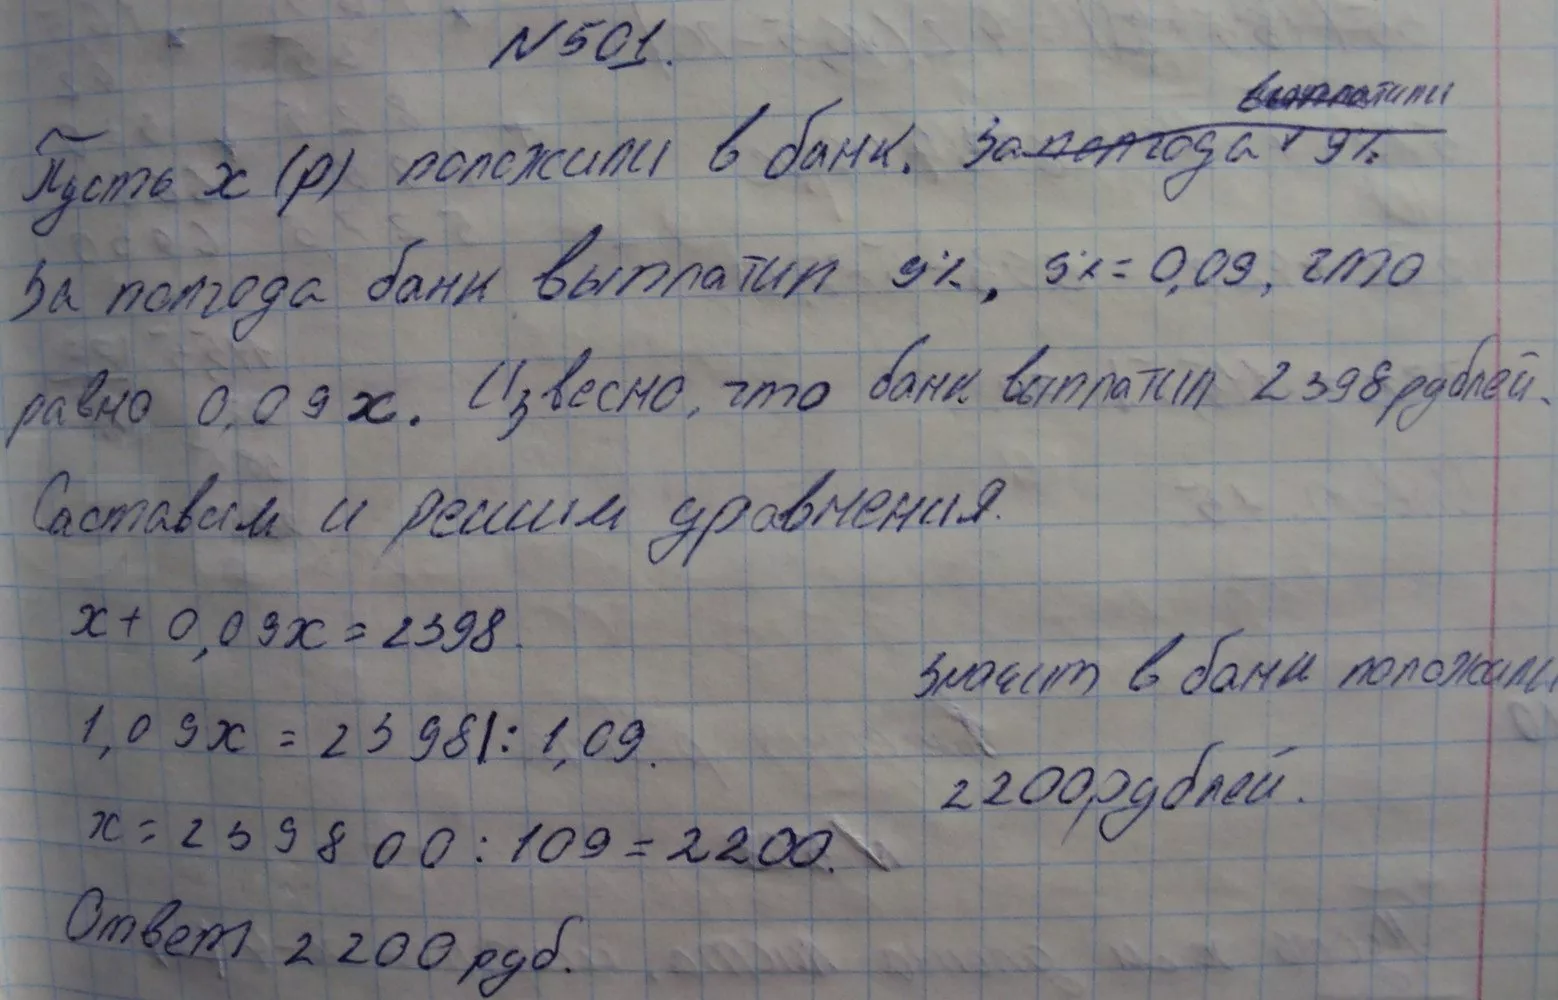 N501.
выплатили
Пусть х (р) положили в банк. За полгода 9%
За полгода банк выплатил 9%, 9%=0,09, что
равно 0,09х. Извесно, что банк выплатил 2398 рублей.
Саставим и решим уравнения.
х+0,09х=2398.
1,09х=2398|:1,09.
х=239800:109=2200.
Значит в банк положили
2200рублей.
Ответ 2200 руб.